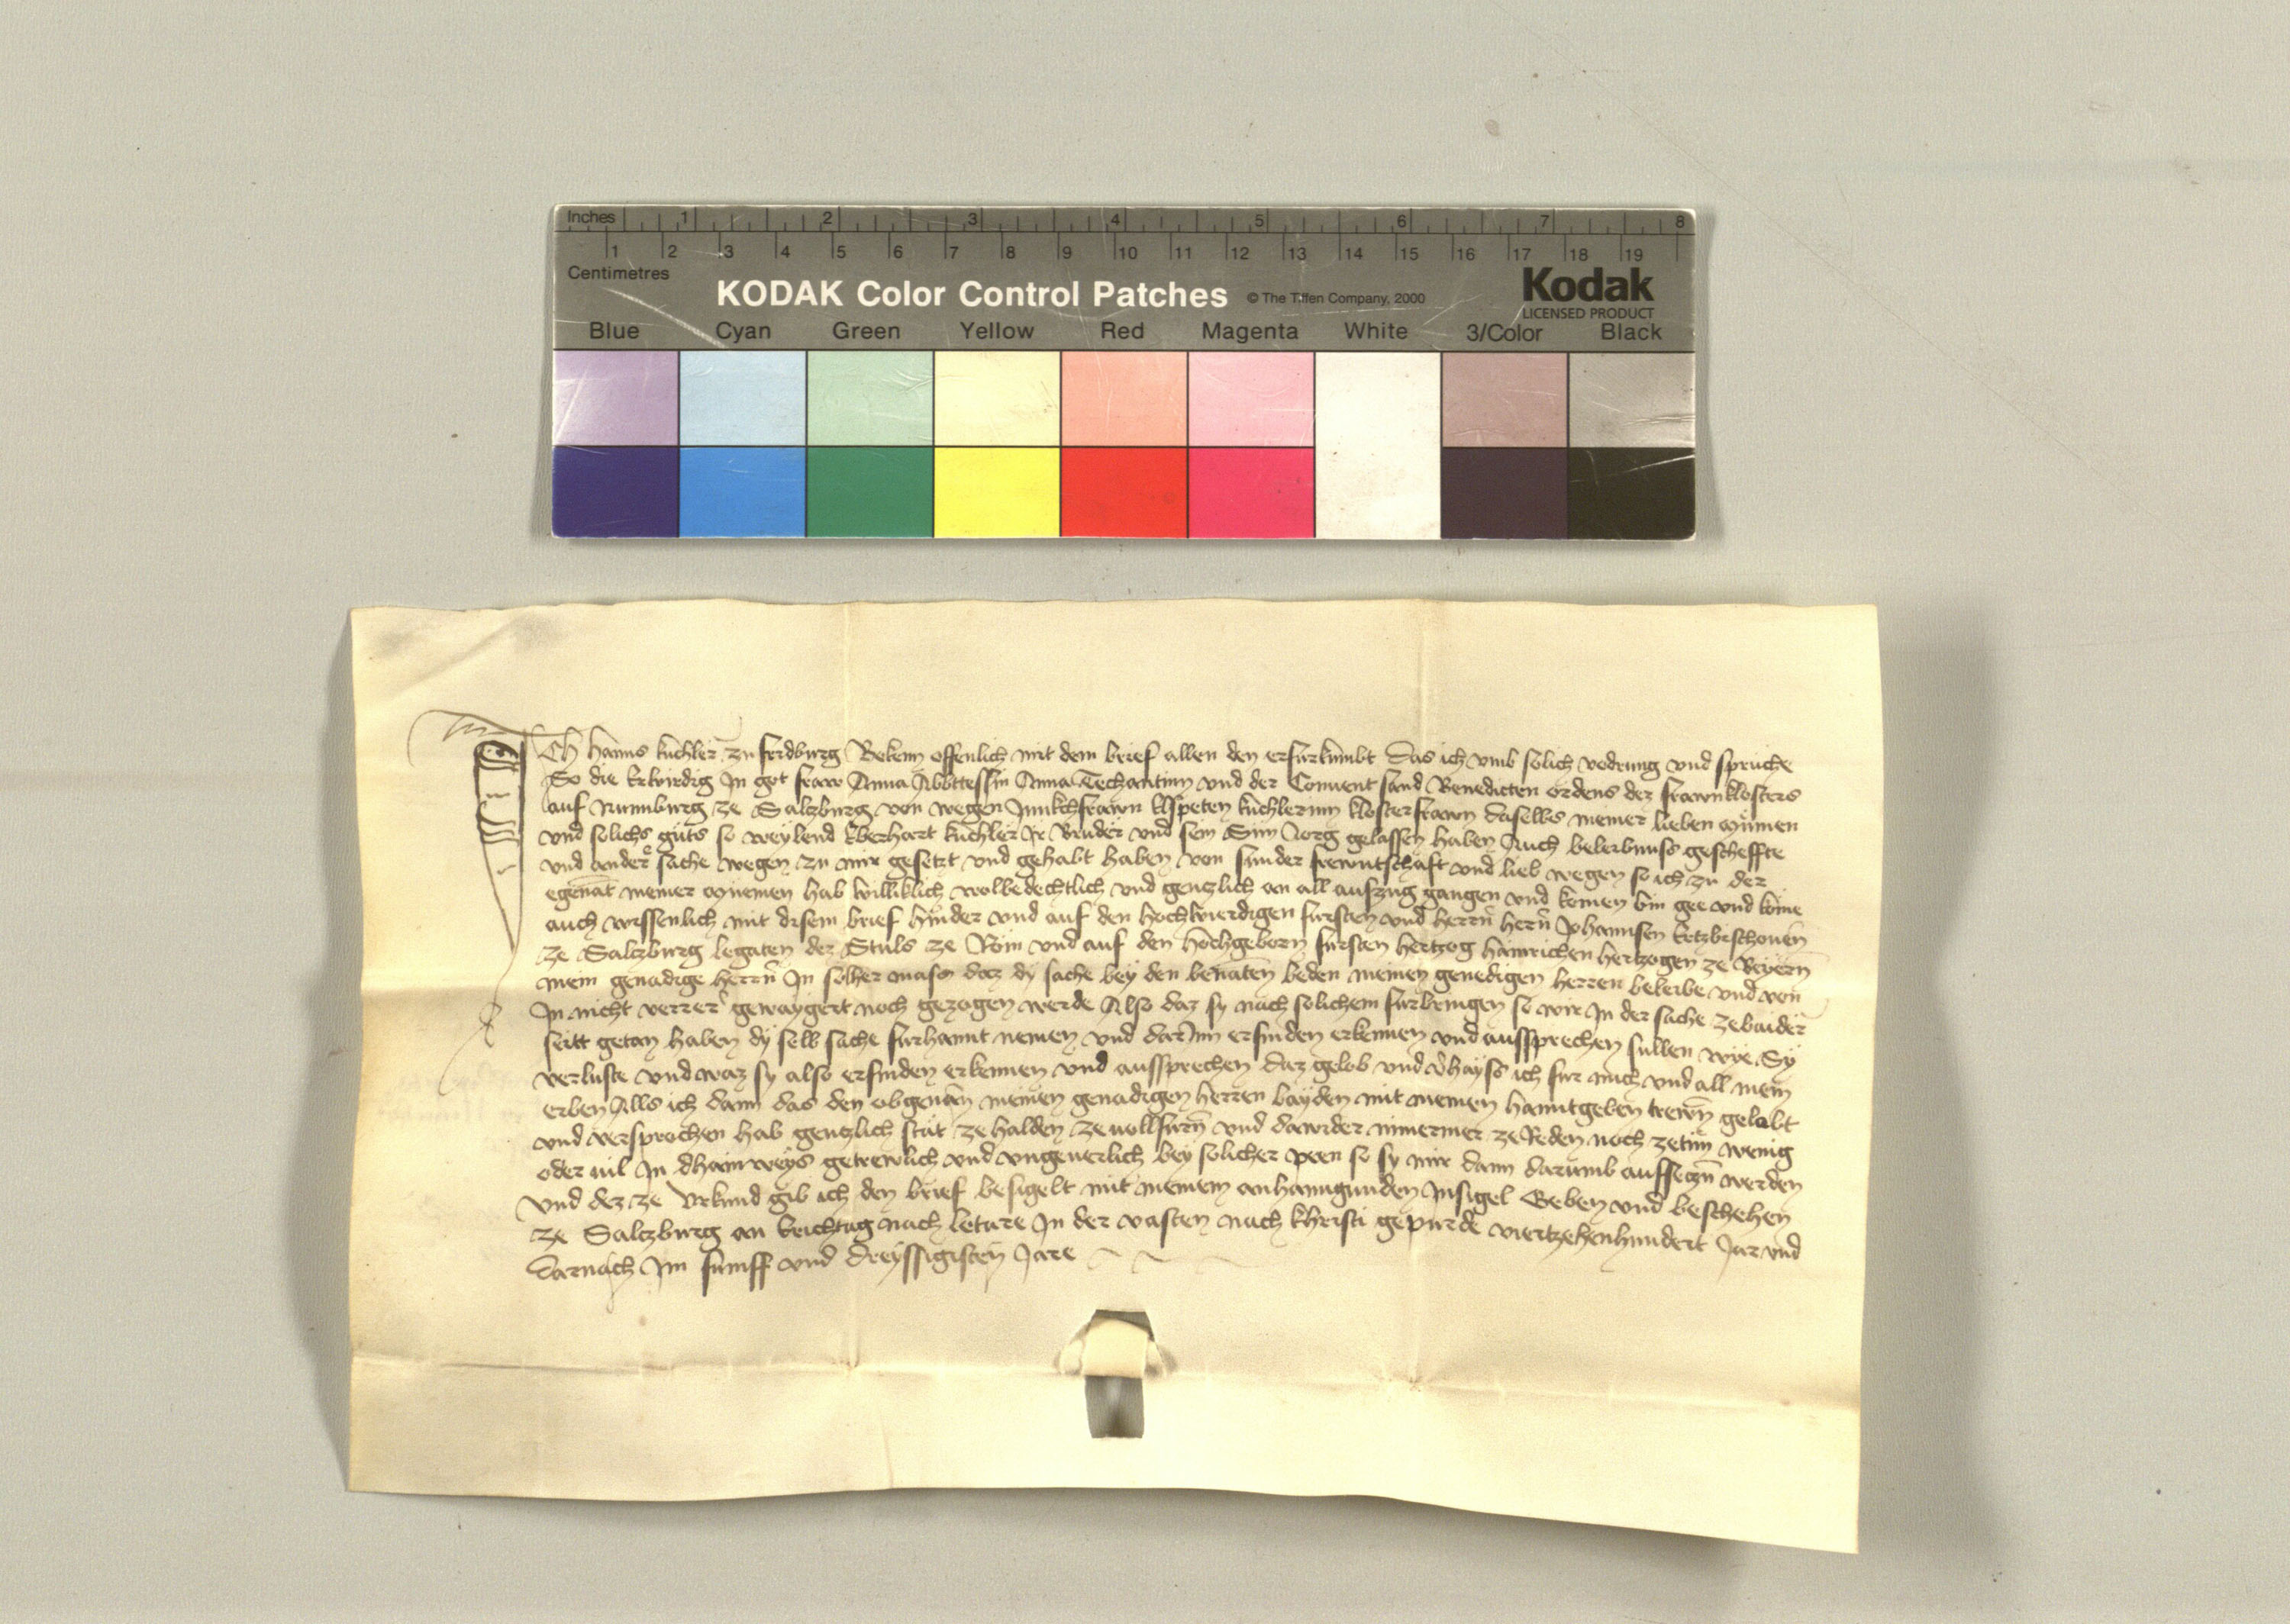 Inches 1 2 3 4 5 6 7 8
1 2 3 4 5 6 7 8 9 10 11 12 13 14 15 16 17 18 19
Centimetres
KODAK Color Control Patches © The Tiffen Company, 2000 Kodak
LICENSED PRODUCT
Blue Cyan Green Yellow Red Magenta White 3/Color Black
Ich Hanns kuchler zu fridburg Bekenn offenlich mit dem brief allen den er furkumbt Das ich vmb solich vodrung vnd spruche
So die Erwirdig In got fraw Anna Abbttessin Anna Techantinn vnd der Conuent sand Benedicten ordens dez frawnklosters
auf Nunnburg ze Salczburg von wegen Junkchfrawn Elspeten kuchlerinn klosterfrawn daselbs meiner lieben Mumen
vnd solichs guts so weylend Eberhart kuchler Ir Bruder vnd sein Sun Jorg gelassen haben Auch beleibnuss gescheffte
vnd ander sache wegen zu mir gesetzt vnd gehabt haben von sunder frewntschaft vnd lieb wegen so ich zu der
egenant meiner Muemen hab williklich wolbedechtlich vnd genczlich an all aufzug gangen vnd komen bin gee vnd kome
auch wissenlich mit disem brief hinder vnd auf den Hochwierdigen fursten vnd herrn hern Johannsen Ertzbischouen
ze Salczburg legaten der Stuls ze Rom vnd auf den Hochgeborn fursten hertzog Hainrichen hertzogen ze Beyern
mein genadige herrn In solher mass daz dy sache bey den benaten beden meinen genedigen herren beleibe vnd von
In nicht verrer gewaygert noch gezogen werde Also daz sy nach solichem furbringen so wir In der sache ze baider
seitt getan haben dy selb sache furhannt nemen vnd darInn erfinden erkennen vnd aussprechen sullen wye Sy
verluste vnd waz sy also erfinden erkennen vnd aussprechen daz gelob vnd vhayss ich fur mich vnd all mein
erben Alls ich dann das den obgenan meinen genadigen herren bayden mit meinen hanntgeben trewn gelobt
vnd versprochen hab genczlich stat ze halden ze uollfurn vnd dawider nimermer ze Reden noch zetun wenig
oder uil In dhain weys getrewlich vnd vngeuerlich bey solicher peen so sy mir dann darumb aufseczn werden
vnd dez ze Vrkund gib ich den brief besigelt mit meinem anhanngunden Insigel Geben vnd beschehen
ze Salczburg an Erichtag nach letare In der vasten nach Khristi gepurde viertzehenhundert Jar vnd
darnach Im funff vnd dreyssigisten Jare